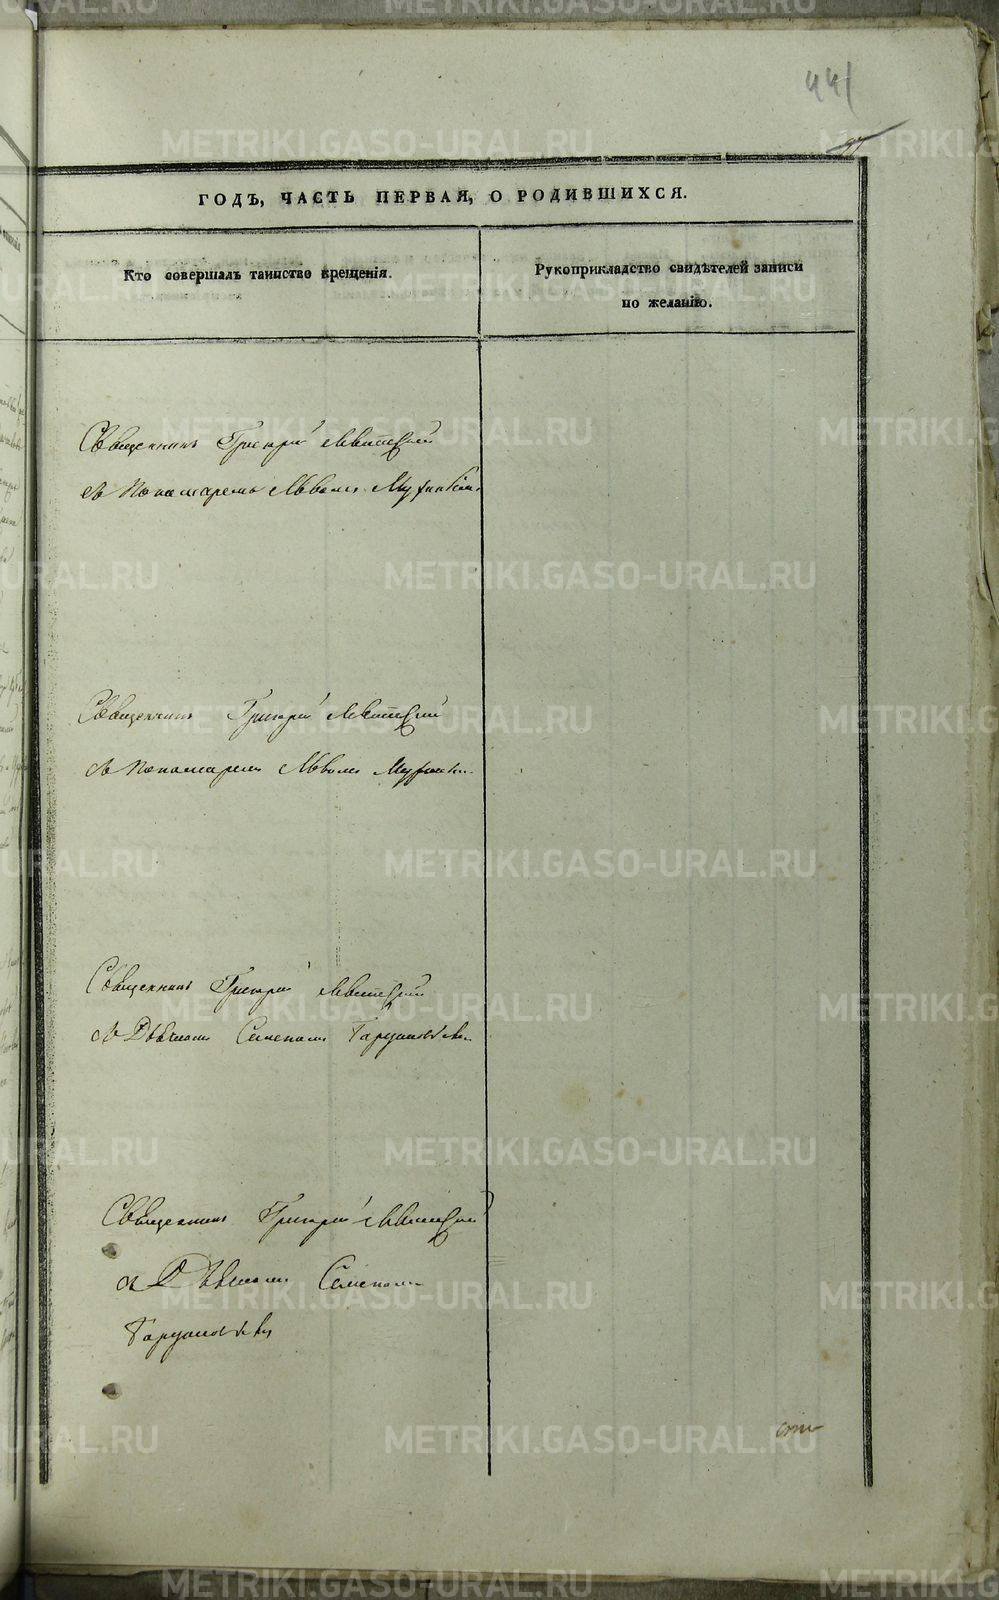 441
ГОДЪ, ЧАСТЬ ПЕРВАЯ, О РОДИВШИХСЯ.
Кто совершалъ таинство крещенія.
Рукоприкладство свидѣтелей записи
по желанію.
Священникъ Григорій Левитскій
съ Пономаремъ Львомъ
Священникъ Григорій Левитскій
съ Пономаремъ Львомъ
Священникъ Григорій Левитскій
съ Дьякомъ Семеномъ
Священникъ Григорій Левитскій
съ Дьякомъ Семеномъ
METRIKI.GASO-URAL.RU